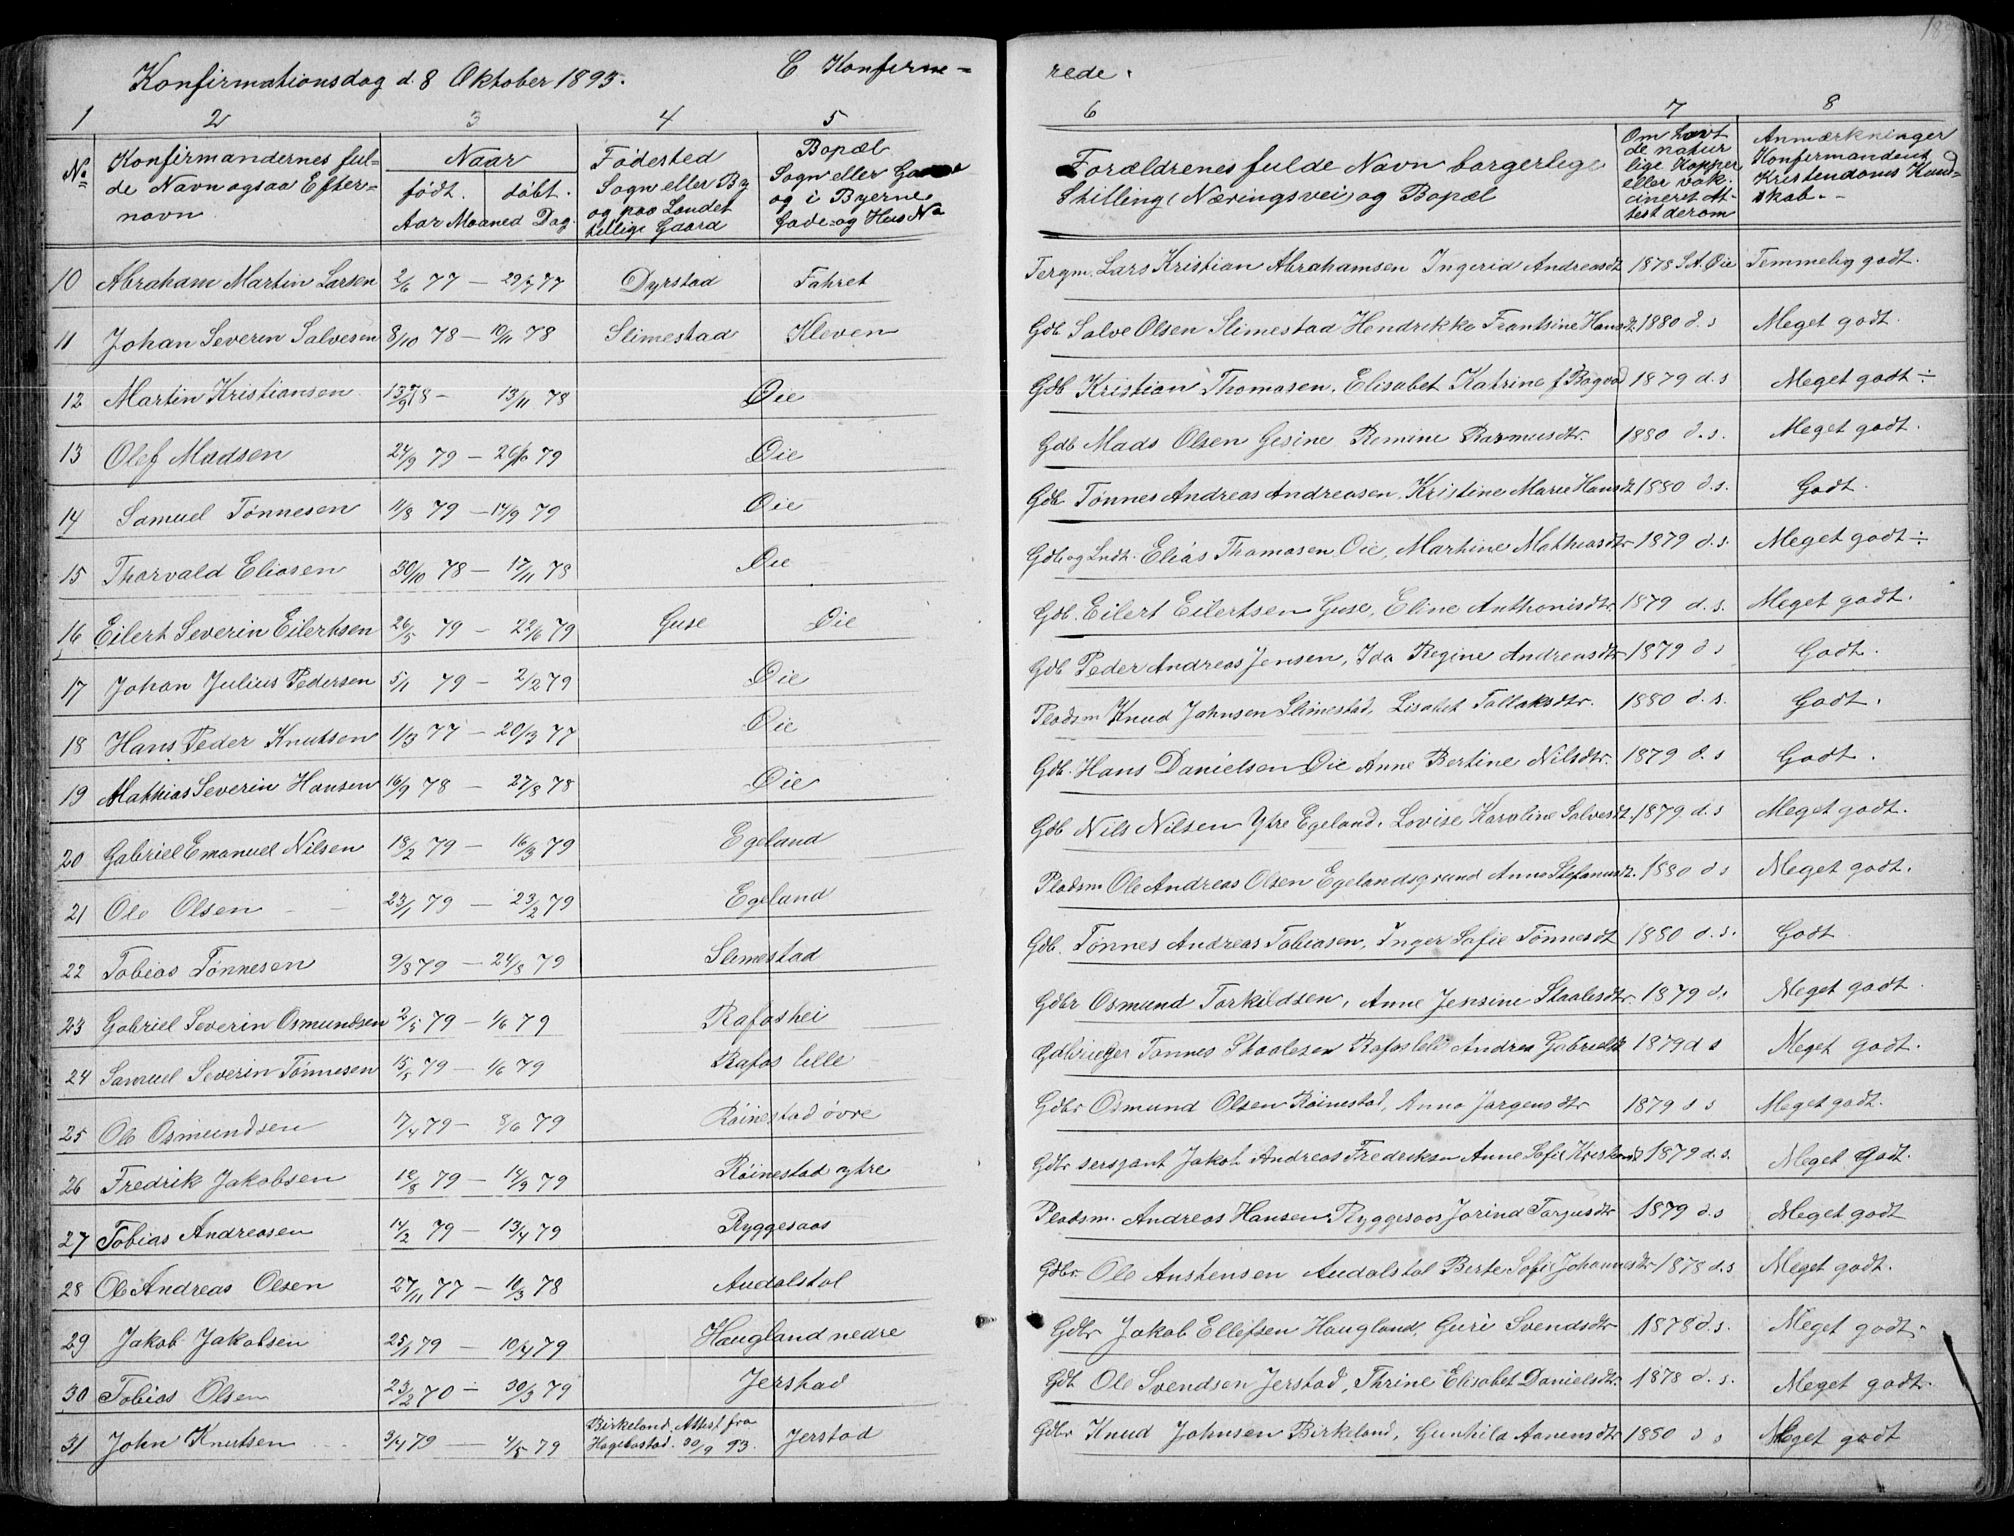 Konfirmationsdag d. 8 Oktober 1893.
C Konfirme=
rede.
1 2 3 4 5 6 7 8
No Konfirmandernes ful=
de Navn ogsaa Efter=
navn
Naar
født. døbt.
Aar Maaned Dag.
Fødested
Sogn eller By
og paa Landet
tillige Gaard
Bopæl
Sogn eller Gaard
og i Byerne
Gade- og Hus No
Forældrenes fulde Navn borgerlige
Stilling (Næringsvei) og Bopæl
Om havt
de natur
lige Kopper
eller vak-
cineret At-
test derom
Anmærkninger
Konfirmandens
Kristendoms Kund=
skab.
10 Abraham Martin Larsen 2/6 77 — 29/7 77 Dyrstad Fahret Lars Kristian Abrahamsen Ingerid Andreasdt 1878 S.A. Øie Temmelig godt.
11 Johan Severin Salvesen 8/10 78 — 10/11 78 Slimestad Kleven Gdb Salve Olsen Slimestad Hendrikke Frantsine Hansdt. 1880 d. s Meget godt.
12 Martin Kristiansen 13/9 78 — 13/11 78 Øie Gdb Kristian Thomasen, Elisabet Katrine f. 1879 d. s Meget godt ÷
13 Olef Madsen 24/9 79 — 79 Øie Gdb Mads Olsen Gesine Remine Rasmusdtr. 1880 d. s. Meget godt.
14 Samuel Tønnesen 11/8 79 — 14/9 79 Øie Gdb. Tønnes Andreas Andreasen, Kristine Marie Hansdt 1880 d. s. Godt.
15 Thorvald Eliasen 30/10 78 — 17/11 78 Øie Gdb og Lndt. Elias Thomasen Øie, Martine Mathiasdtr 1879 d. s. Meget godt ÷
16 Eilert Severin Eilertsen 26/5 79 — 22/6 79 Guse Øie Gdb. Eilert Eilertsen Guse, Eline Anthonisdtr. 1879 d. s. Meget godt.
17 Johan Julius Pedersen 5/1 79 — 2/2 79 Øie Gdb Peder Andreas Jensen, Ida Regine Andreasdtr 1879 d s Godt.
18 Hans Peder Knutsen 1/3 77 — 20/3 77 Øie Pladsm Knud Johnsen Slimestad, Lisabet Tallaksdtr. 1880 d. s. Godt.
19 Mathias Severin Hansen 16/9 78 — 27/8 78 Øie Gdb. Hans Danielsen Øie Anne Bertine Nilsdtr. 1879 d. s Godt.
20 Gabriel Emanuel Nilsen 18/2 79 — 16/3 79 Egeland Gdb Nils Nilsen Ytre Egeland. Lovise Karoline Salvesdt. 1879 d. s Meget godt.
21 Ole Olsen 23/1 79 — 23/2 79 Egeland Pladsm Ole Andreas Olsen Egelandsgrund Anna Stefanusdt. 1880 d s Meget godt.
22 Tobias Tønnesen 9/8 79 — 24/8 79 Slimestad Gdb. Tønnes Andreas Tobiasen, Inger Sofie Tønnesdt 1880 d. s. Godt
23 Gabriel Severin Osmundsen 2/5 79 — 1/6 79 Rafoshei Gdbr Osmund Torkildsen, Anne Jensine Staalesdtr. 1879 d. Meget godt.
24 Samuel Severin Tønnesen 15/5 79 — 1/6 79 Rafos lille Tønnes Staalesen Rafos lille Andrea Gabrielsdt 1879 d s Meget godt.
25 Ole Osmundsen 17/4 79 — 8/6 79 Røinestad øvre Gdbr Osmund Olsen Røinestad, Anna Jørgensdtr 1879 d s Meget godt.
26 Fredrik Jakobsen 79 — 79 Røinestad ytre Gdbr sersjant Jakob Andreas Frederiksen Anne Sofie 1879 d. s. Meget godt.
27 Tobias Andreasen 14/2 79 — 13/4 79 Ryggesaas Pladsm. Andreas Hansen Ryggesaas Jorind Torjusdtr 1879 d. s Meget godt
28 Ole Andreas Olsen 27/11 77 — 10/3 78 Audalstøl Gdbr. Ole Anstensen Audalstøl Berte Sofie Johannesdtr 1878 d. s Meget godt.
29 Jakob Jakobsen 25/1 79 — 10/4 79 Haugland nedre Gdbr Jakob Ellefsen Haugland, Guri Svendsdtr 1878 d. s. Meget godt.
30 Tobias Olsen 23/2 70 — 30/3 79 Jerstad Gdb Ole Svendsen Jerstad, Thrine Elisabet Danielsdtr. 1878 d. s. Meget godt.
31 John Knutsen 3/4 79 — 4/5 79 Birkeland. Attest fra
Hægebostad. 30/9 93. Jerstad Gdbr Knud Johnsen Birkeland, Gunhild Aanensdtr 1880 d s Meget godt